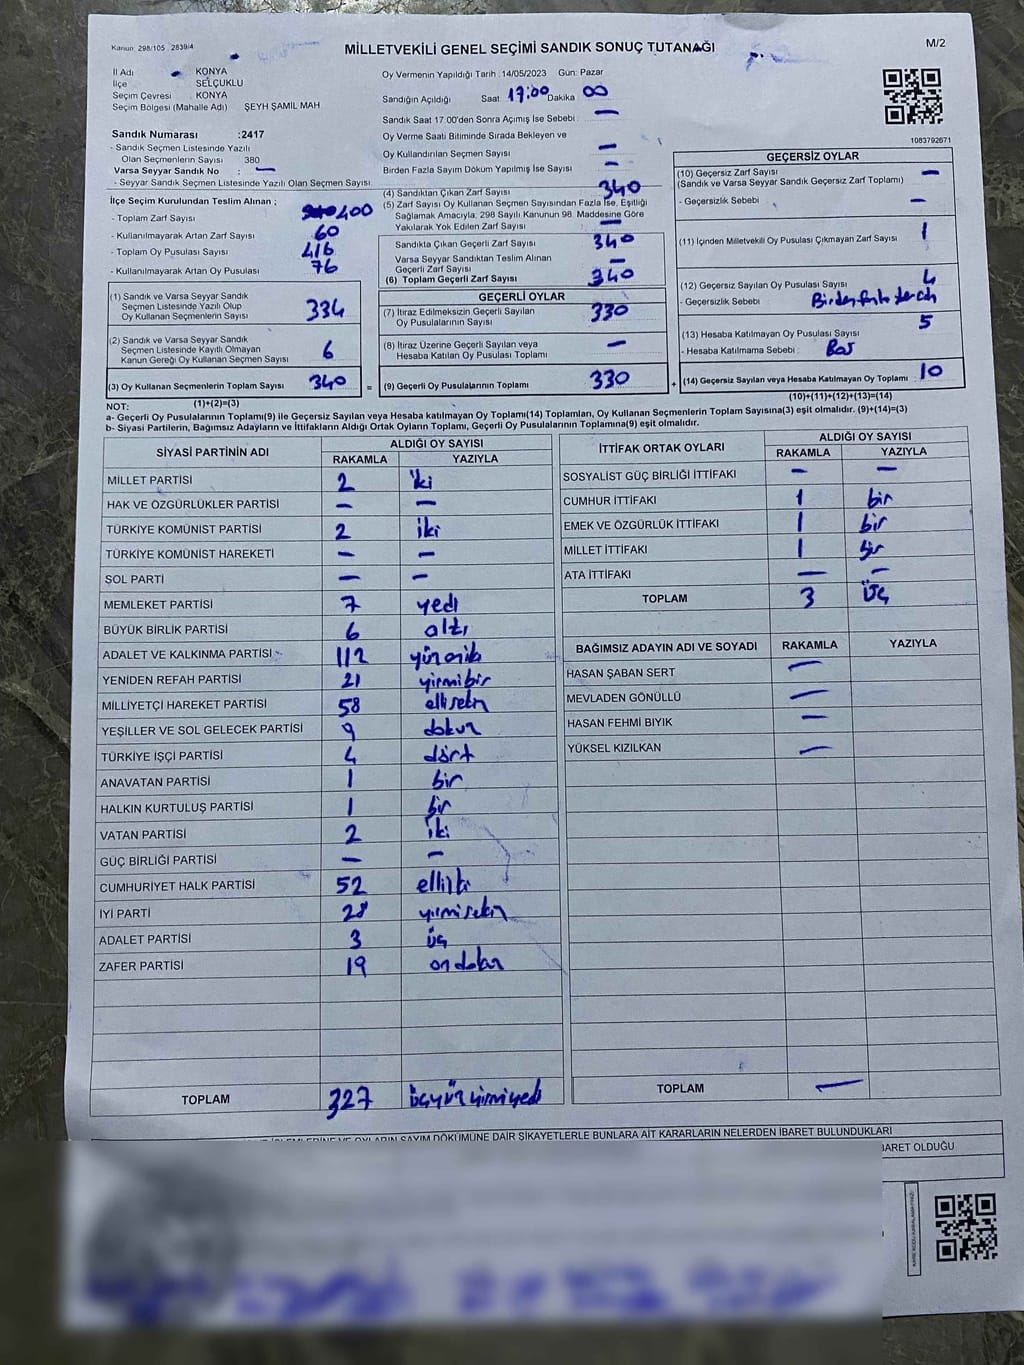 Kanun 298/105 2839/4
MİLLETVEKİLİ GENEL SEÇİMİ SANDIK SONUÇ TUTANAĞI
M/2
İl Adı KONYA
İlçe SELÇUKLU
Seçim Çevresi KONYA
Seçim Bölgesi (Mahalle Adı) ŞEYH ŞAMİL MAH
Sandık Numarası :2417
- Sandık Seçmen Listesinde Yazılı
Olan Seçmenlerin Sayısı 380
Varsa Seyyar Sandık No : —
- Seyyar Sandık Seçmen Listesinde Yazılı Olan Seçmen Sayısı
İlçe Seçim Kurulundan Teslim Alınan ;
- Toplam Zarf Sayısı 400
- Kullanılmayarak Artan Zarf Sayısı 60
- Toplam Oy Pusulası Sayısı 416
- Kullanılmayarak Artan Oy Pusulası 76
(1) Sandık ve Varsa Seyyar Sandık
Seçmen Listesinde Yazılı Olup
Oy Kullanan Seçmenlerin Sayısı 334
(2) Sandık ve Varsa Seyyar Sandık
Seçmen Listesinde Kayıtlı Olmayan
Kanun Gereği Oy Kullanan Seçmen Sayısı 6
(3) Oy Kullanan Seçmenlerin Toplam Sayısı 340 =
(1)+(2)=(3)
Oy Vermenin Yapıldığı Tarih :14/05/2023 Gün: Pazar
Sandığın Açıldığı Saat 17:00 Dakika 00
Sandık Saat 17.00'den Sonra Açımış İse Sebebi : —
Oy Verme Saati Bitiminde Sırada Bekleyen ve
Oy Kullandırılan Seçmen Sayısı —
Birden Fazla Sayım Döküm Yapılmış İse Sayısı —
(4) Sandıktan Çıkan Zarf Sayısı 340
(5) Zarf Sayısı Oy Kullanan Seçmen Sayısından Fazla İse, Eşitliği
Sağlamak Amacıyla, 298 Sayılı Kanunun 98. Maddesine Göre
Yakılarak Yok Edilen Zarf Sayısı —
Sandıkla Çıkan Geçerli Zarf Sayısı 340
Varsa Seyyar Sandıktan Teslim Alınan
Geçerli Zarf Sayısı —
(6) Toplam Geçerli Zarf Sayısı 340
GEÇERLİ OYLAR
(7) İtiraz Edilmeksizin Geçerli Sayılan
Oy Pusulalarının Sayısı 330
(8) İtiraz Üzerine Geçerli Sayılan veya
Hesaba Katılan Oy Pusulası Toplamı —
(9) Geçerli Oy Pusulalarının Toplamı 330 +
1083792671
GEÇERSİZ OYLAR
(10) Geçersiz Zarf Sayısı —
(Sandık ve Varsa Seyyar Sandık Geçersiz Zarf Toplamı)
- Geçersizlik Sebebi —
(11) İçinden Milletvekili Oy Pusulası Çıkmayan Zarf Sayısı 1
(12) Geçersiz Sayılan Oy Pusulası Sayısı 4
- Geçersizlik Sebebi Birden fazla
(13) Hesaba Katılmayan Oy Pusulası Sayısı 5
- Hesaba Katılmama Sebebi : Boş
(14) Geçersiz Sayılan veya Hesaba Katılmayan Oy Toplamı : 10
(10)+(11)+(12)+(13)=(14)
NOT:
a- Geçerli Oy Pusulalarının Toplamı(9) ile Geçersiz Sayılan veya Hesaba katılmayan Oy Toplamı(14) Toplamları, Oy Kullanan Seçmenlerin Toplam Sayısına(3) eşit olmalıdır. (9)+(14)=(3)
b- Siyasi Partilerin, Bağımsız Adayların ve İttifakların Aldığı Ortak Oyların Toplamı, Geçerli Oy Pusulalarının Toplamına(9) eşit olmalıdır.
SİYASİ PARTİNİN ADI ALDIĞI OY SAYISI
RAKAMLA YAZIYLA
MİLLET PARTİSİ 2 iki
HAK VE ÖZGÜRLÜKLER PARTİSİ — —
TÜRKİYE KOMÜNİST PARTİSİ 2 iki
TÜRKİYE KOMÜNİST HAREKETİ — —
SOL PARTİ — —
MEMLEKET PARTİSİ 7 yedi
BÜYÜK BİRLİK PARTİSİ 6 altı
ADALET VE KALKINMA PARTİSİ 112 yüz oniki
YENİDEN REFAH PARTİSİ 21 yirmibir
MİLLİYETÇİ HAREKET PARTİSİ 58 ellisekiz
YEŞİLLER VE SOL GELECEK PARTİSİ 9 dokuz
TÜRKİYE İŞÇİ PARTİSİ 4 dört
ANAVATAN PARTİSİ 1 bir
HALKIN KURTULUŞ PARTİSİ 1 bir
VATAN PARTİSİ 2 iki
GÜÇ BİRLİĞİ PARTİSİ — —
CUMHURİYET HALK PARTİSİ 52 elliiki
İYİ PARTİ 28 yirmisekiz
ADALET PARTİSİ 3 üç
ZAFER PARTİSİ 19 ondokuz
TOPLAM 327 üçyüz yirmiyedi
İTTİFAK ORTAK OYLARI ALDIĞI OY SAYISI
RAKAMLA YAZIYLA
SOSYALİST GÜÇ BİRLİĞİ İTTİFAKI — —
CUMHUR İTTİFAKI 1 bir
EMEK VE ÖZGÜRLÜK İTTİFAKI 1 bir
MİLLET İTTİFAKI 1 bir
ATA İTTİFAKI — —
TOPLAM 3 üç
BAĞIMSIZ ADAYIN ADI VE SOYADI RAKAMLA YAZIYLA
HASAN ŞABAN SERT —
MEVLADEN GÖNÜLLÜ —
HASAN FEHMİ BIYIK —
YÜKSEL KIZILKAN —
TOPLAM —
İŞLEMLERİNE VE OYLARIN SAYIM DÖKÜMÜNE DAİR ŞİKAYETLERLE BUNLARA AİT KARARLARIN NELERDEN İBARET BULUNDUKLARI
BARET OLDUĞU